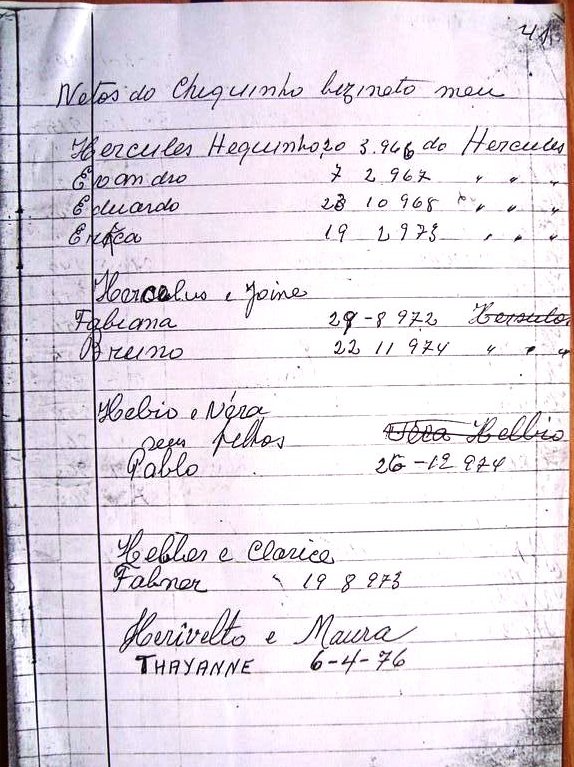 41
Netos do Chequinho bizineto meu
Hercules Hequinho 20 3.946 do Hercules
Evandro 7 2 967 " " "
Eduardo 23 10 968 " " "
Erica 19 2 973 " " "
Herculus e Joine
Fabiana 29-8 972 Herculo
Bruno 22 11 974 " " "
Hebio e Véra
seus felhos Véra Helbio
Pablo 26-12 974
Hebber e Clarice
Fabner 19 8 973
Herivelto e Maura
THAYANNE 6-4-76